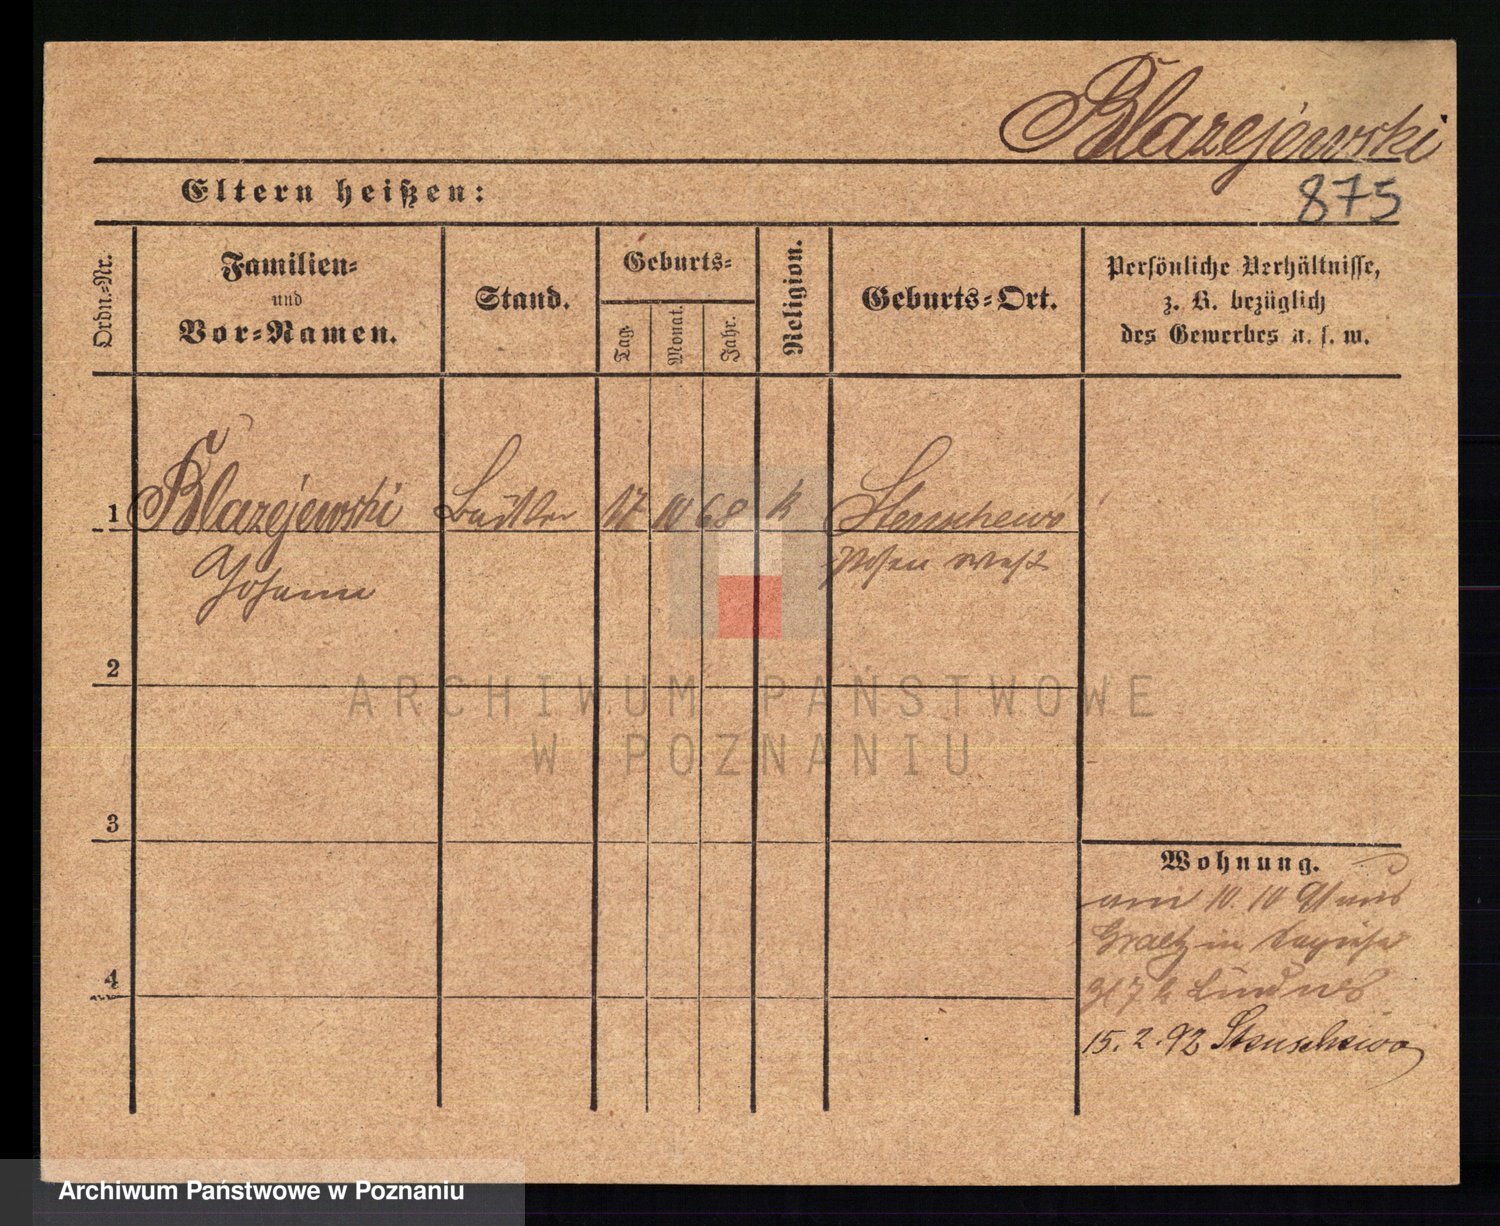 Blazejewski
Eltern heißen:
875
Ordn.-Nr.
Familien-
und
Vor-Namen.
Stand.
Geburts-
Tag.
Monat.
Jahr.
Religion.
Geburts-Ort.
Persönliche Verhältnisse,
z. B. bezüglich
des Gewerbes u. s. w.
1 Blazejewski 17 10 68 k Stenschewo
Johann Posen West
2
3
4
Wohnung.
am 10. 10 91 aus
Graetz in
15. 2. 92 Stenschewo
ARCHIWUM PAŃSTWOWE
W POZNANIU
Archiwum Państwowe w Poznaniu